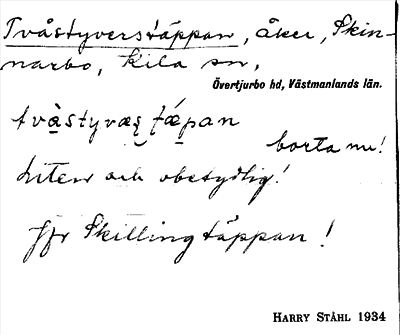 Tvåstyverstäppan, åker, Skin-
narbo, Kila sn,
Övertjurbo hd, Västmanlands län.
tvàstyvæʂ tæ´pan
borta nu!
Liten och obetydlig!
Jfr Skillingtäppan!
HARRY STÅHL 1934